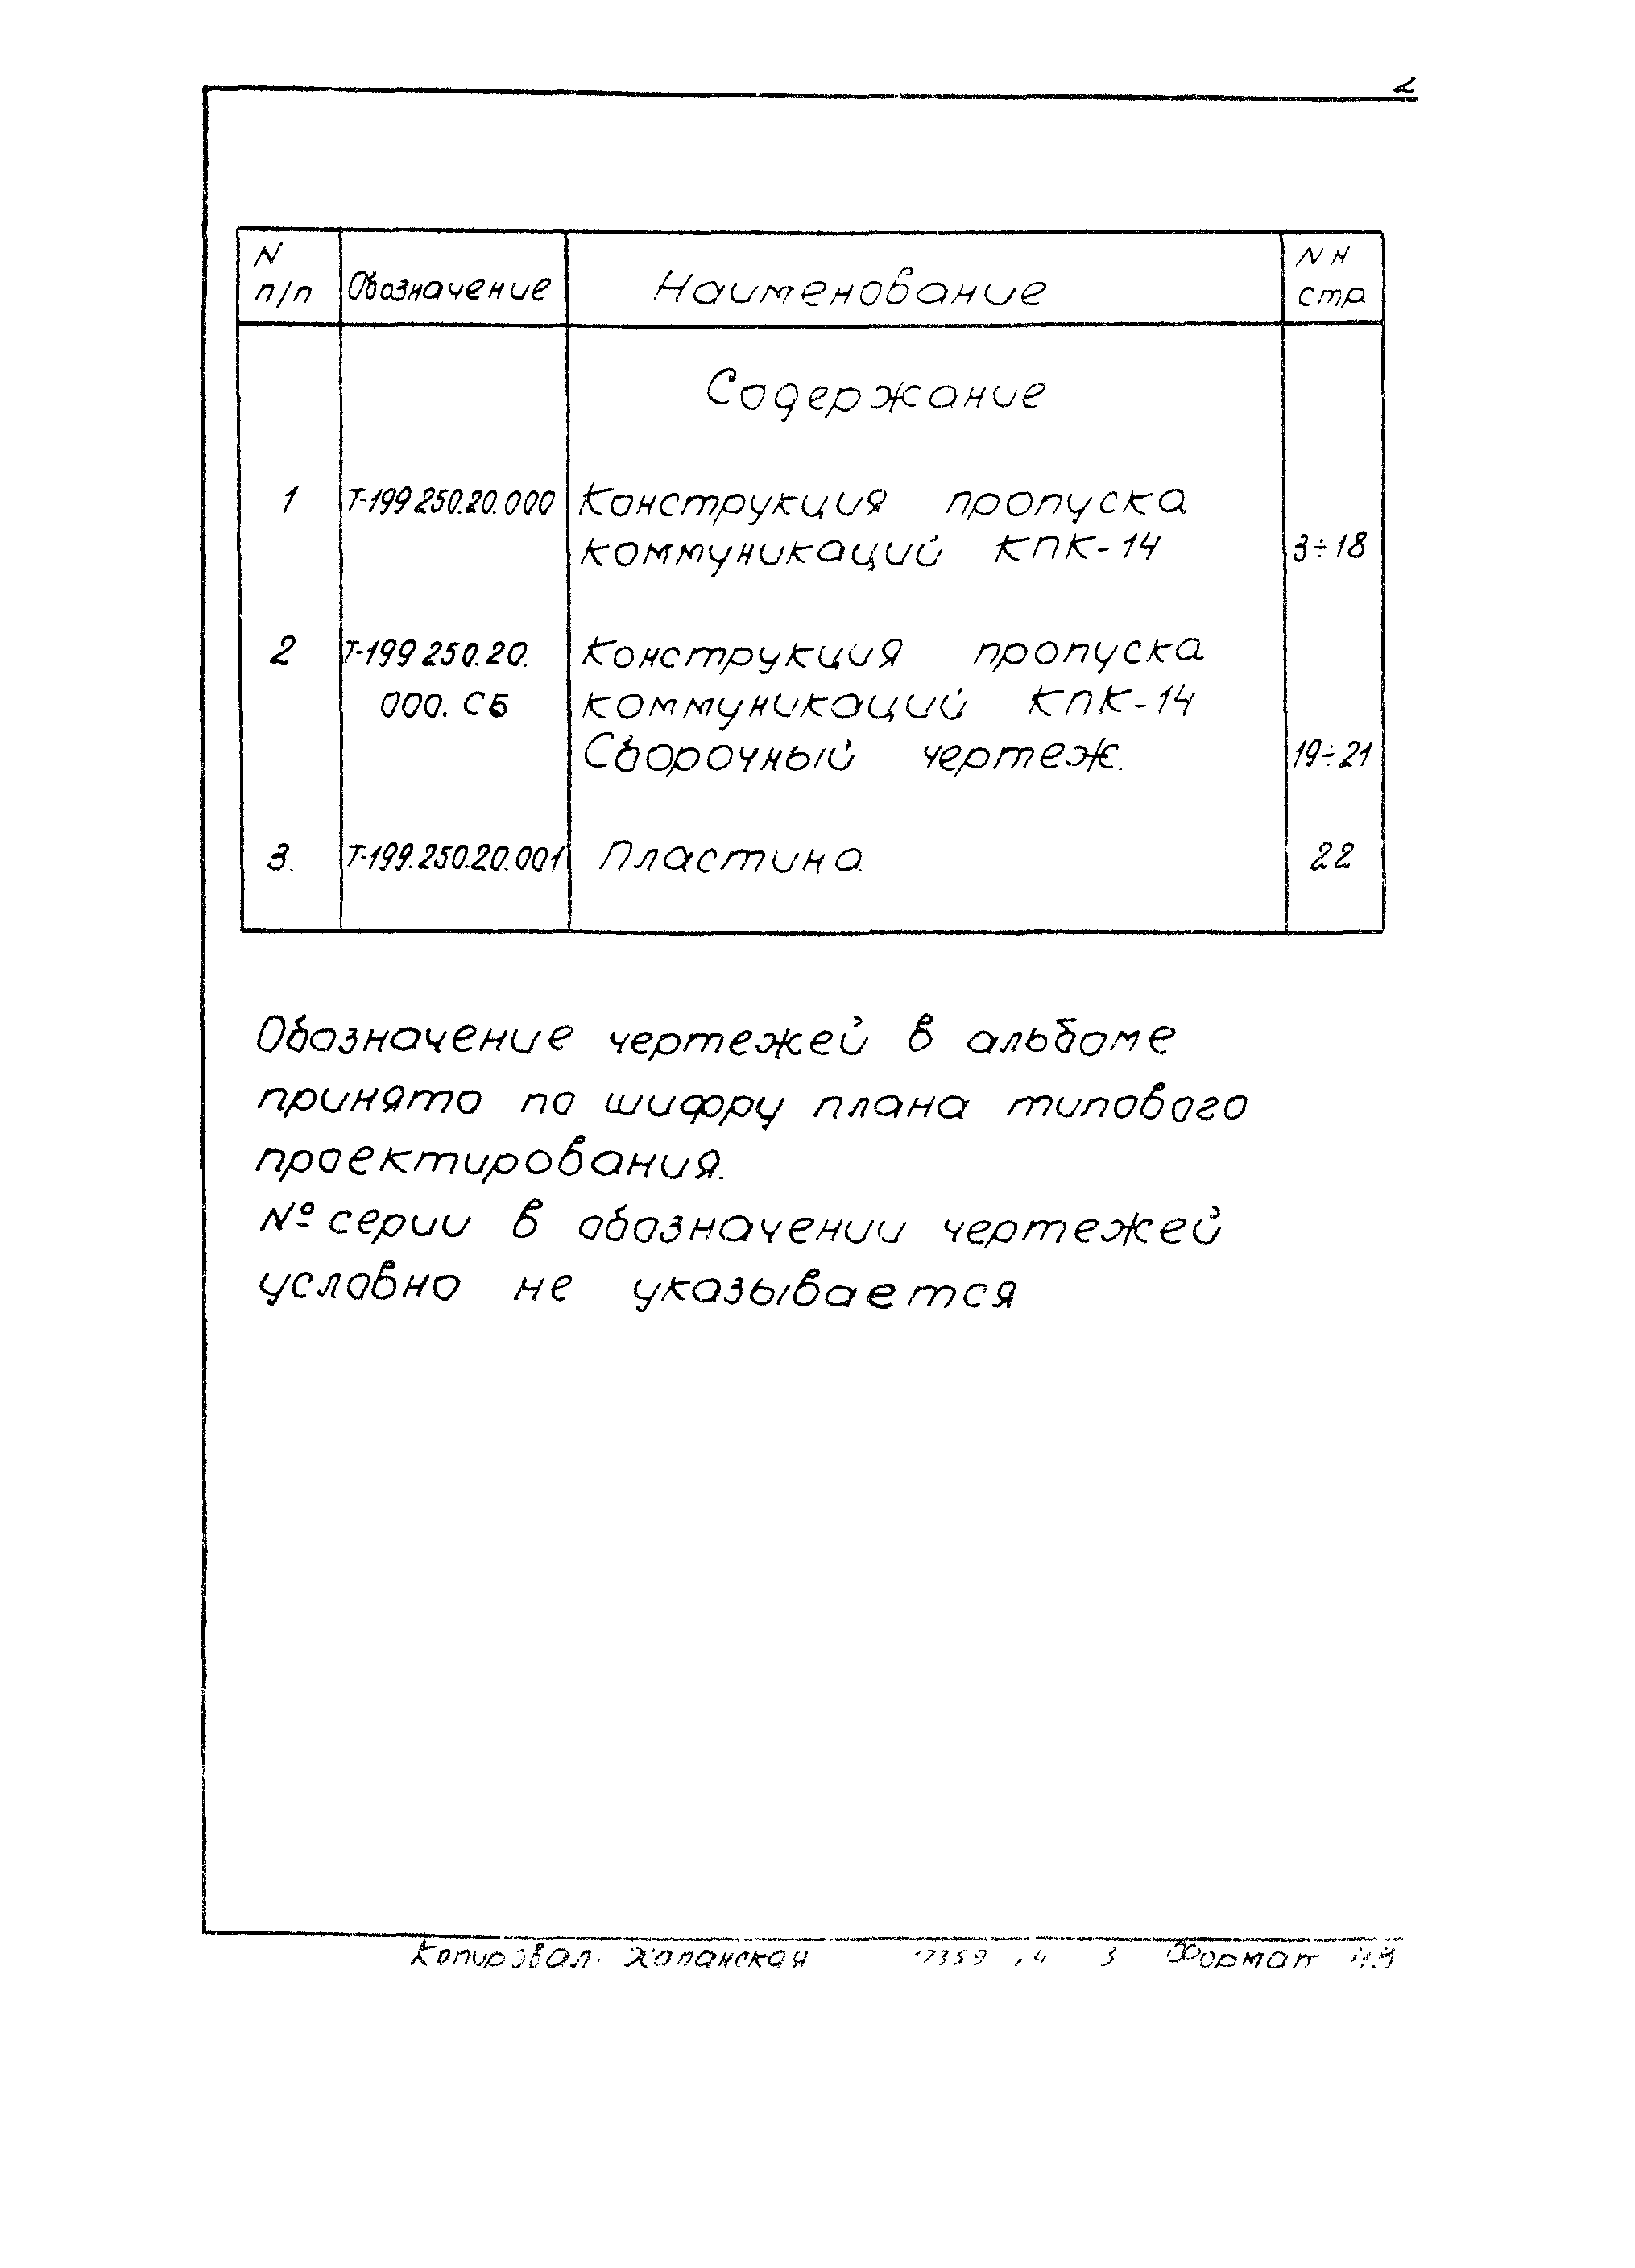 2
N п/п Обозначение Наименование NN стр
Содержание
1 Т-199 250.20.000 Конструкция пропуска
коммуникаций КПК-14 3÷18
2 Т-199 250.20. Конструкция пропуска
000. СБ коммуникаций КПК-14
Сборочный чертеж. 19÷21
3. Т-199.250.20.001 Пластина 22
Обозначение чертежей в альбоме
принято по шифру плана типового
проектирования.
№ серии в обозначении чертежей
условно не указывается
Копировал. 3 Формат